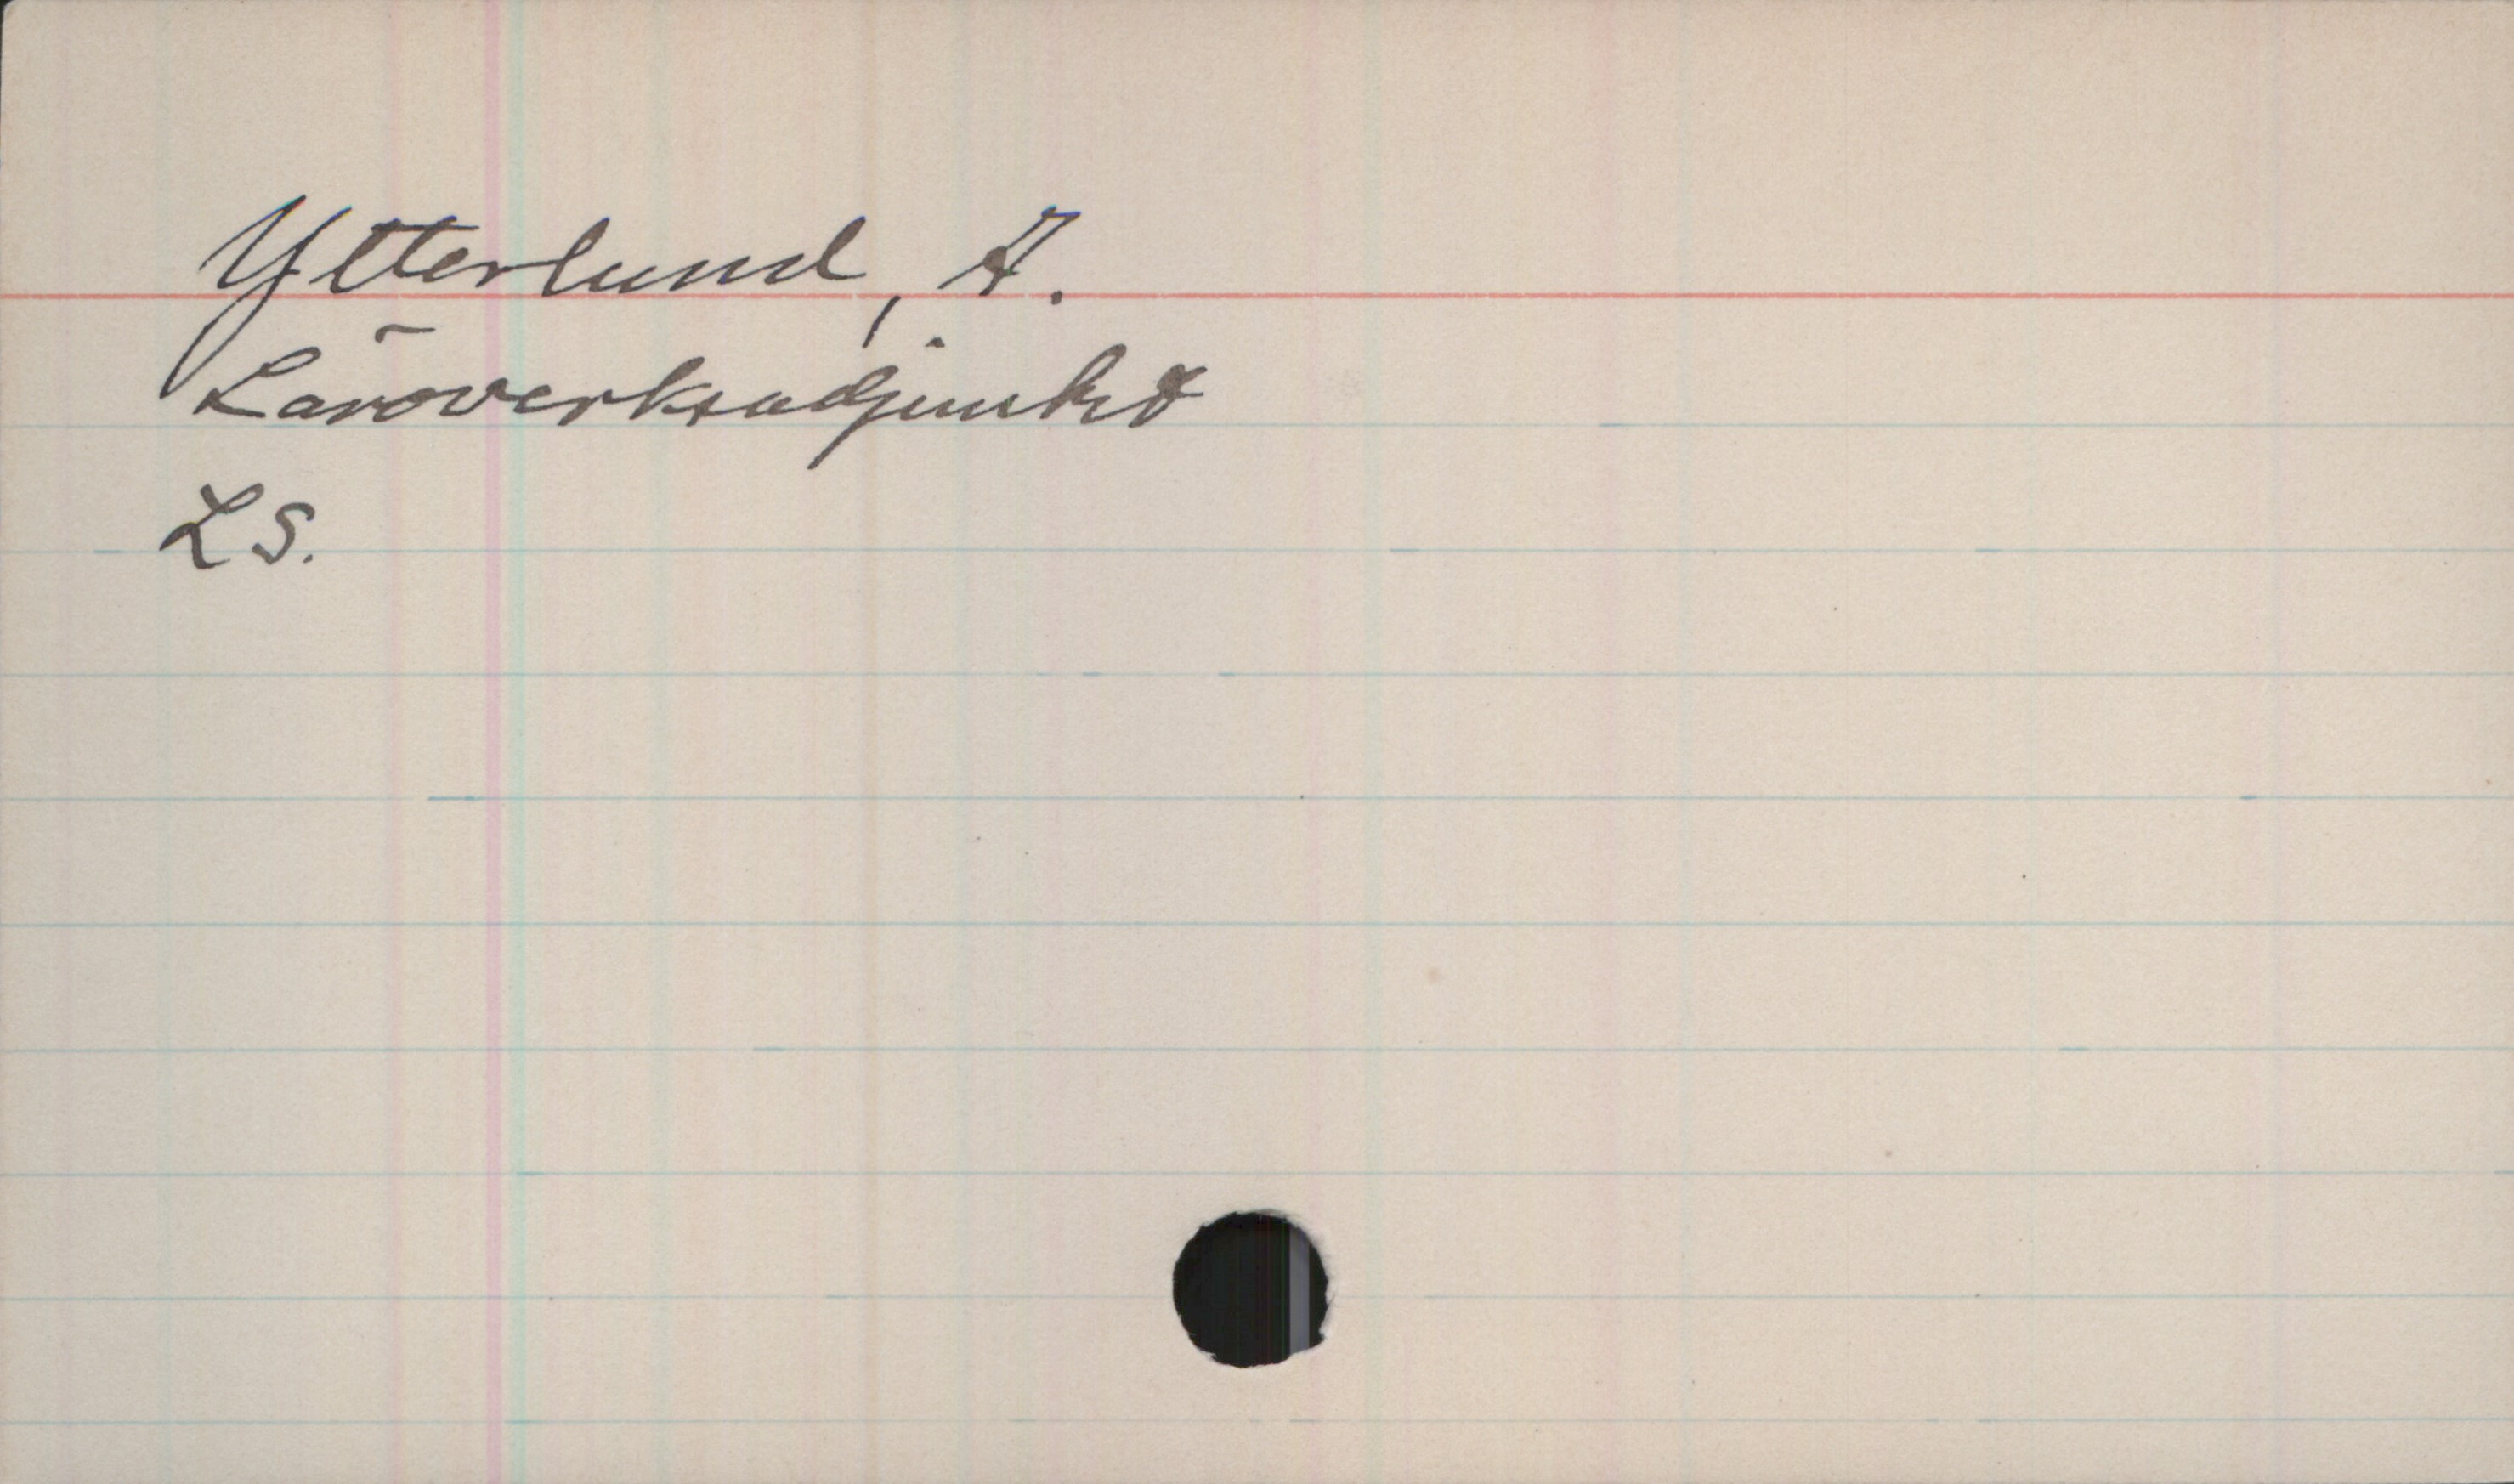 Ytterlund, A.
Läroverksadjunkt
LS.